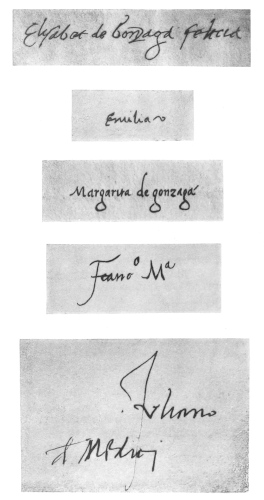 Elysabet de Gonzaga Feltria
Emilia
Margarita de gonzaga
Franᵒ Mᵃ
Juliano
de Medici